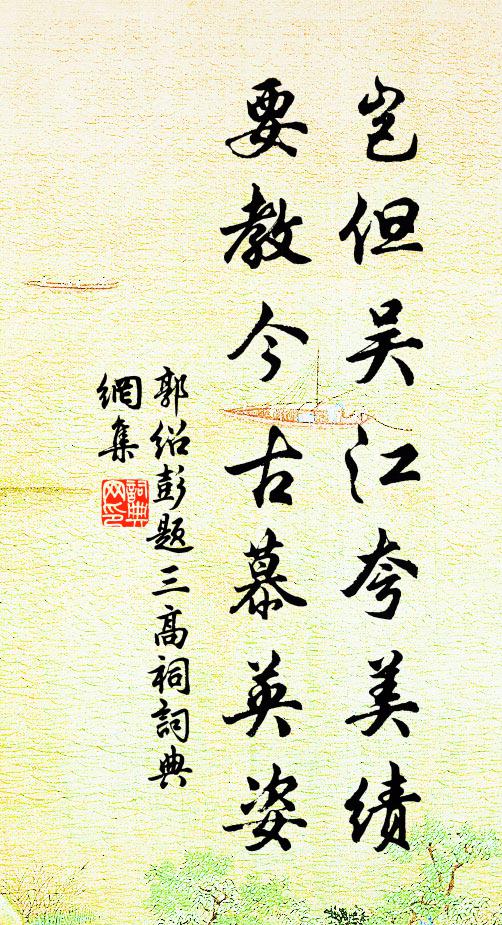 岂但吴江夸美绩
要教今古慕英姿
郭绍彭题三高祠詞典
網集
詞典
网印